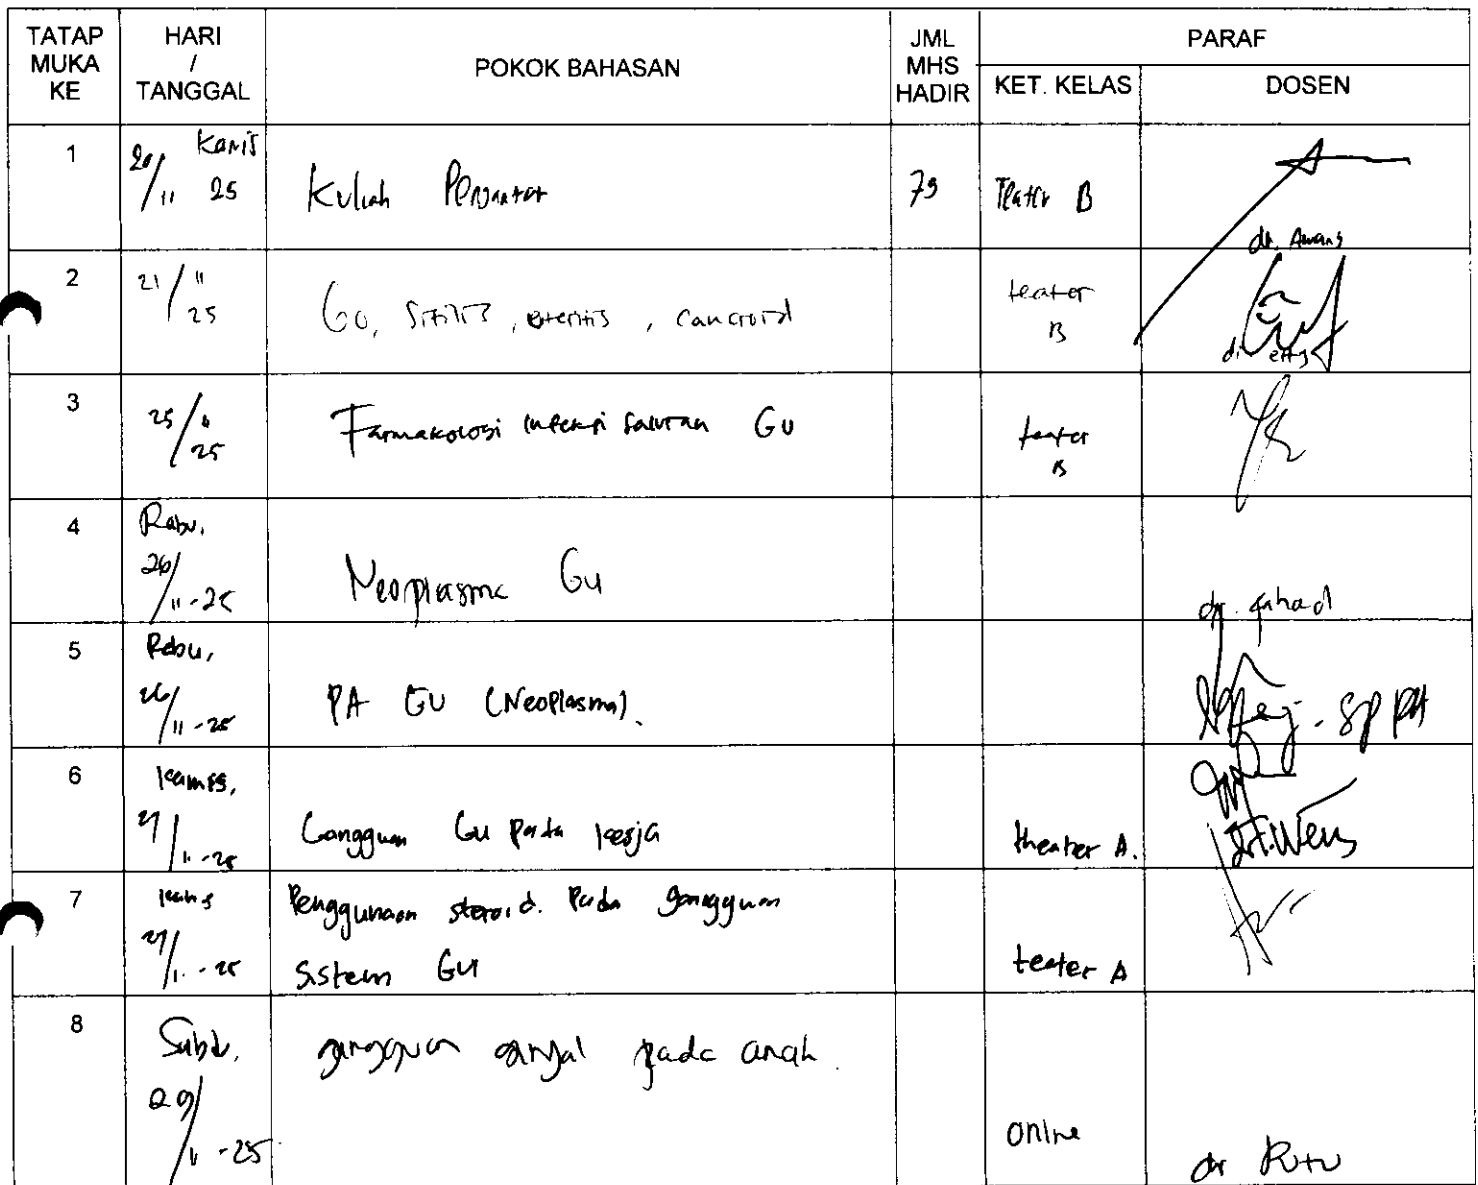 TATAP MUKA KE
HARI / TANGGAL
POKOK BAHASAN
JML MHS HADIR
PARAF
KET. KELAS
DOSEN
1
Kamis
20/11 25
Kuliah Pengantar
79
Teater B
dr. Awang
2
21/11 25
GO, Sifilis, , cancroid
teater B
dr. etty
3
25/11 25
Farmakologi infeksi saluran GU
teater B
4
Rabu,
26/11-25
Neoplasma GU
dr. Fahad
5
Rabu,
26/11-25
PA GU (Neoplasma).
Sp PA
6
Kamis,
27/11-25
Gangguan GU pada kerja
theater A.
7
Kamis
27/11-25
Penggunaan steroid. Pada gangguan
Sistem GU
teater A
8
Sabtu,
29/11-25
gangguan ginjal pada anak.
online
dr Putu